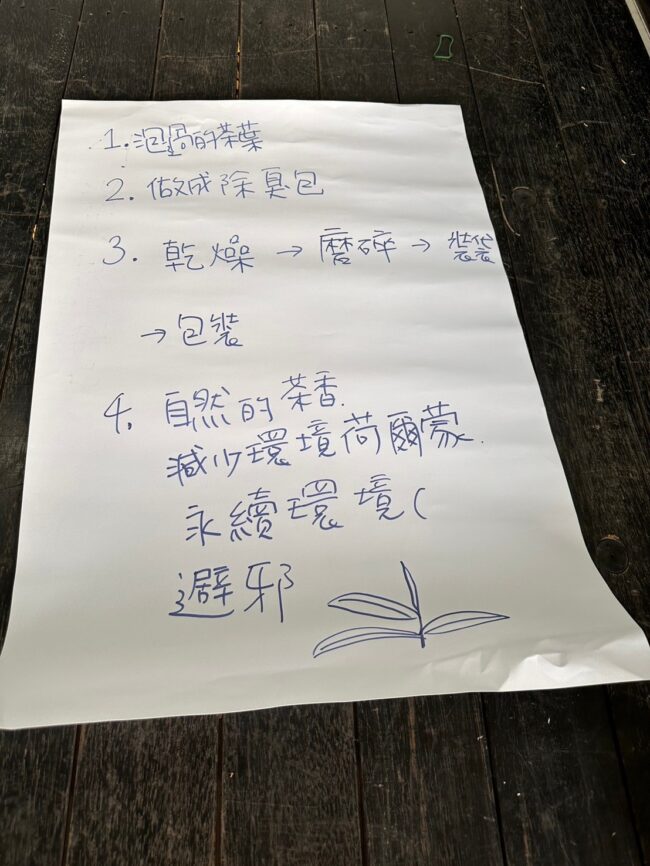 1. 泡過的茶葉
2. 做成除臭包
3. 乾燥 → 磨碎 → 裝袋
→ 包裝
4. 自然的茶香.
減少環境荷爾蒙.
永續環境(
避邪